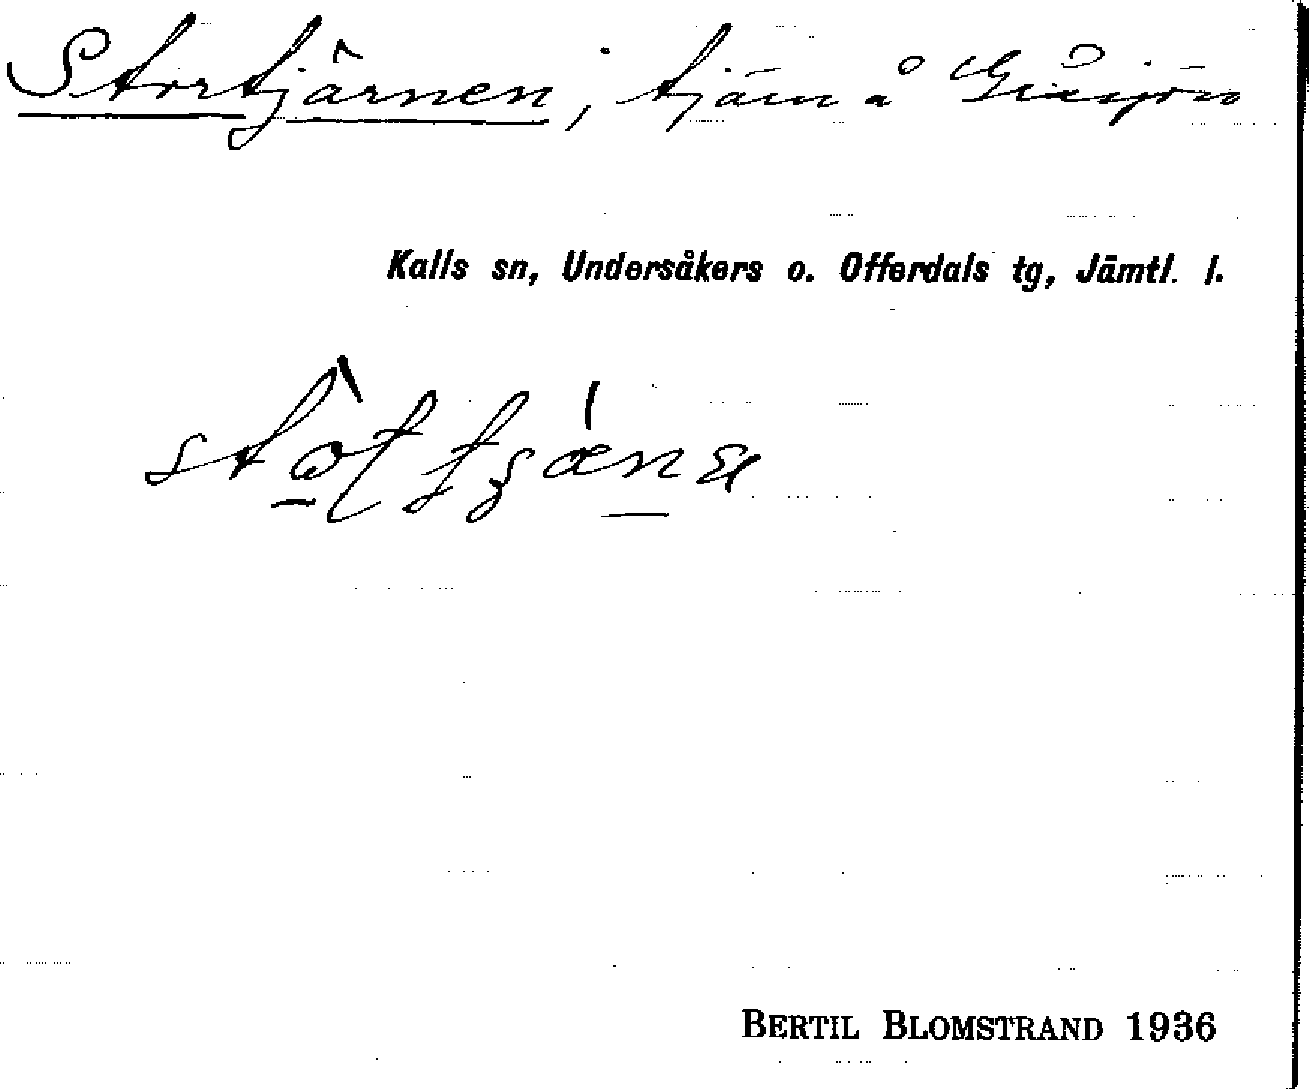 Stortjärnen, tjärn å Gåxsjön
Kalls sn, Undersåkers o. Offerdals tg, Jämtl. l.
BERTIL BLOMSTRAND 1936